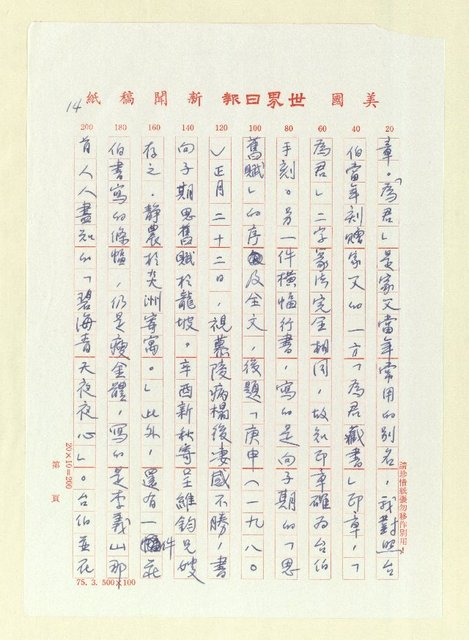 美國世界日報新聞稿紙
14
20
章。「為君」是家父當年常用的別名，我對照台
40
伯當年刻贈家父的一方「為君藏書」印章，「
60
為君」二字篆法完全相同，故知印章確為台伯
80
手刻。另一件橫幅行書，寫的是向子期的「思
100
舊賦」的序及全文，後題「庚申（一九八〇
120
）正月二十二日，視慕陵病榻後淒感不勝，書
140
向子期思舊賦於龍坡。辛酉新秋寄呈維鈞兄嫂
160
存之。靜農於炎洲寄寓。」此外，還有一件莊
180
伯書寫的條幅，仍是瘦金體，寫的是李義山那
200
首人人盡知的「碧海青天夜夜心」。台伯並在
請珍惜紙張勿移作別用
20×10=200
第 頁
75. 3. 500×100